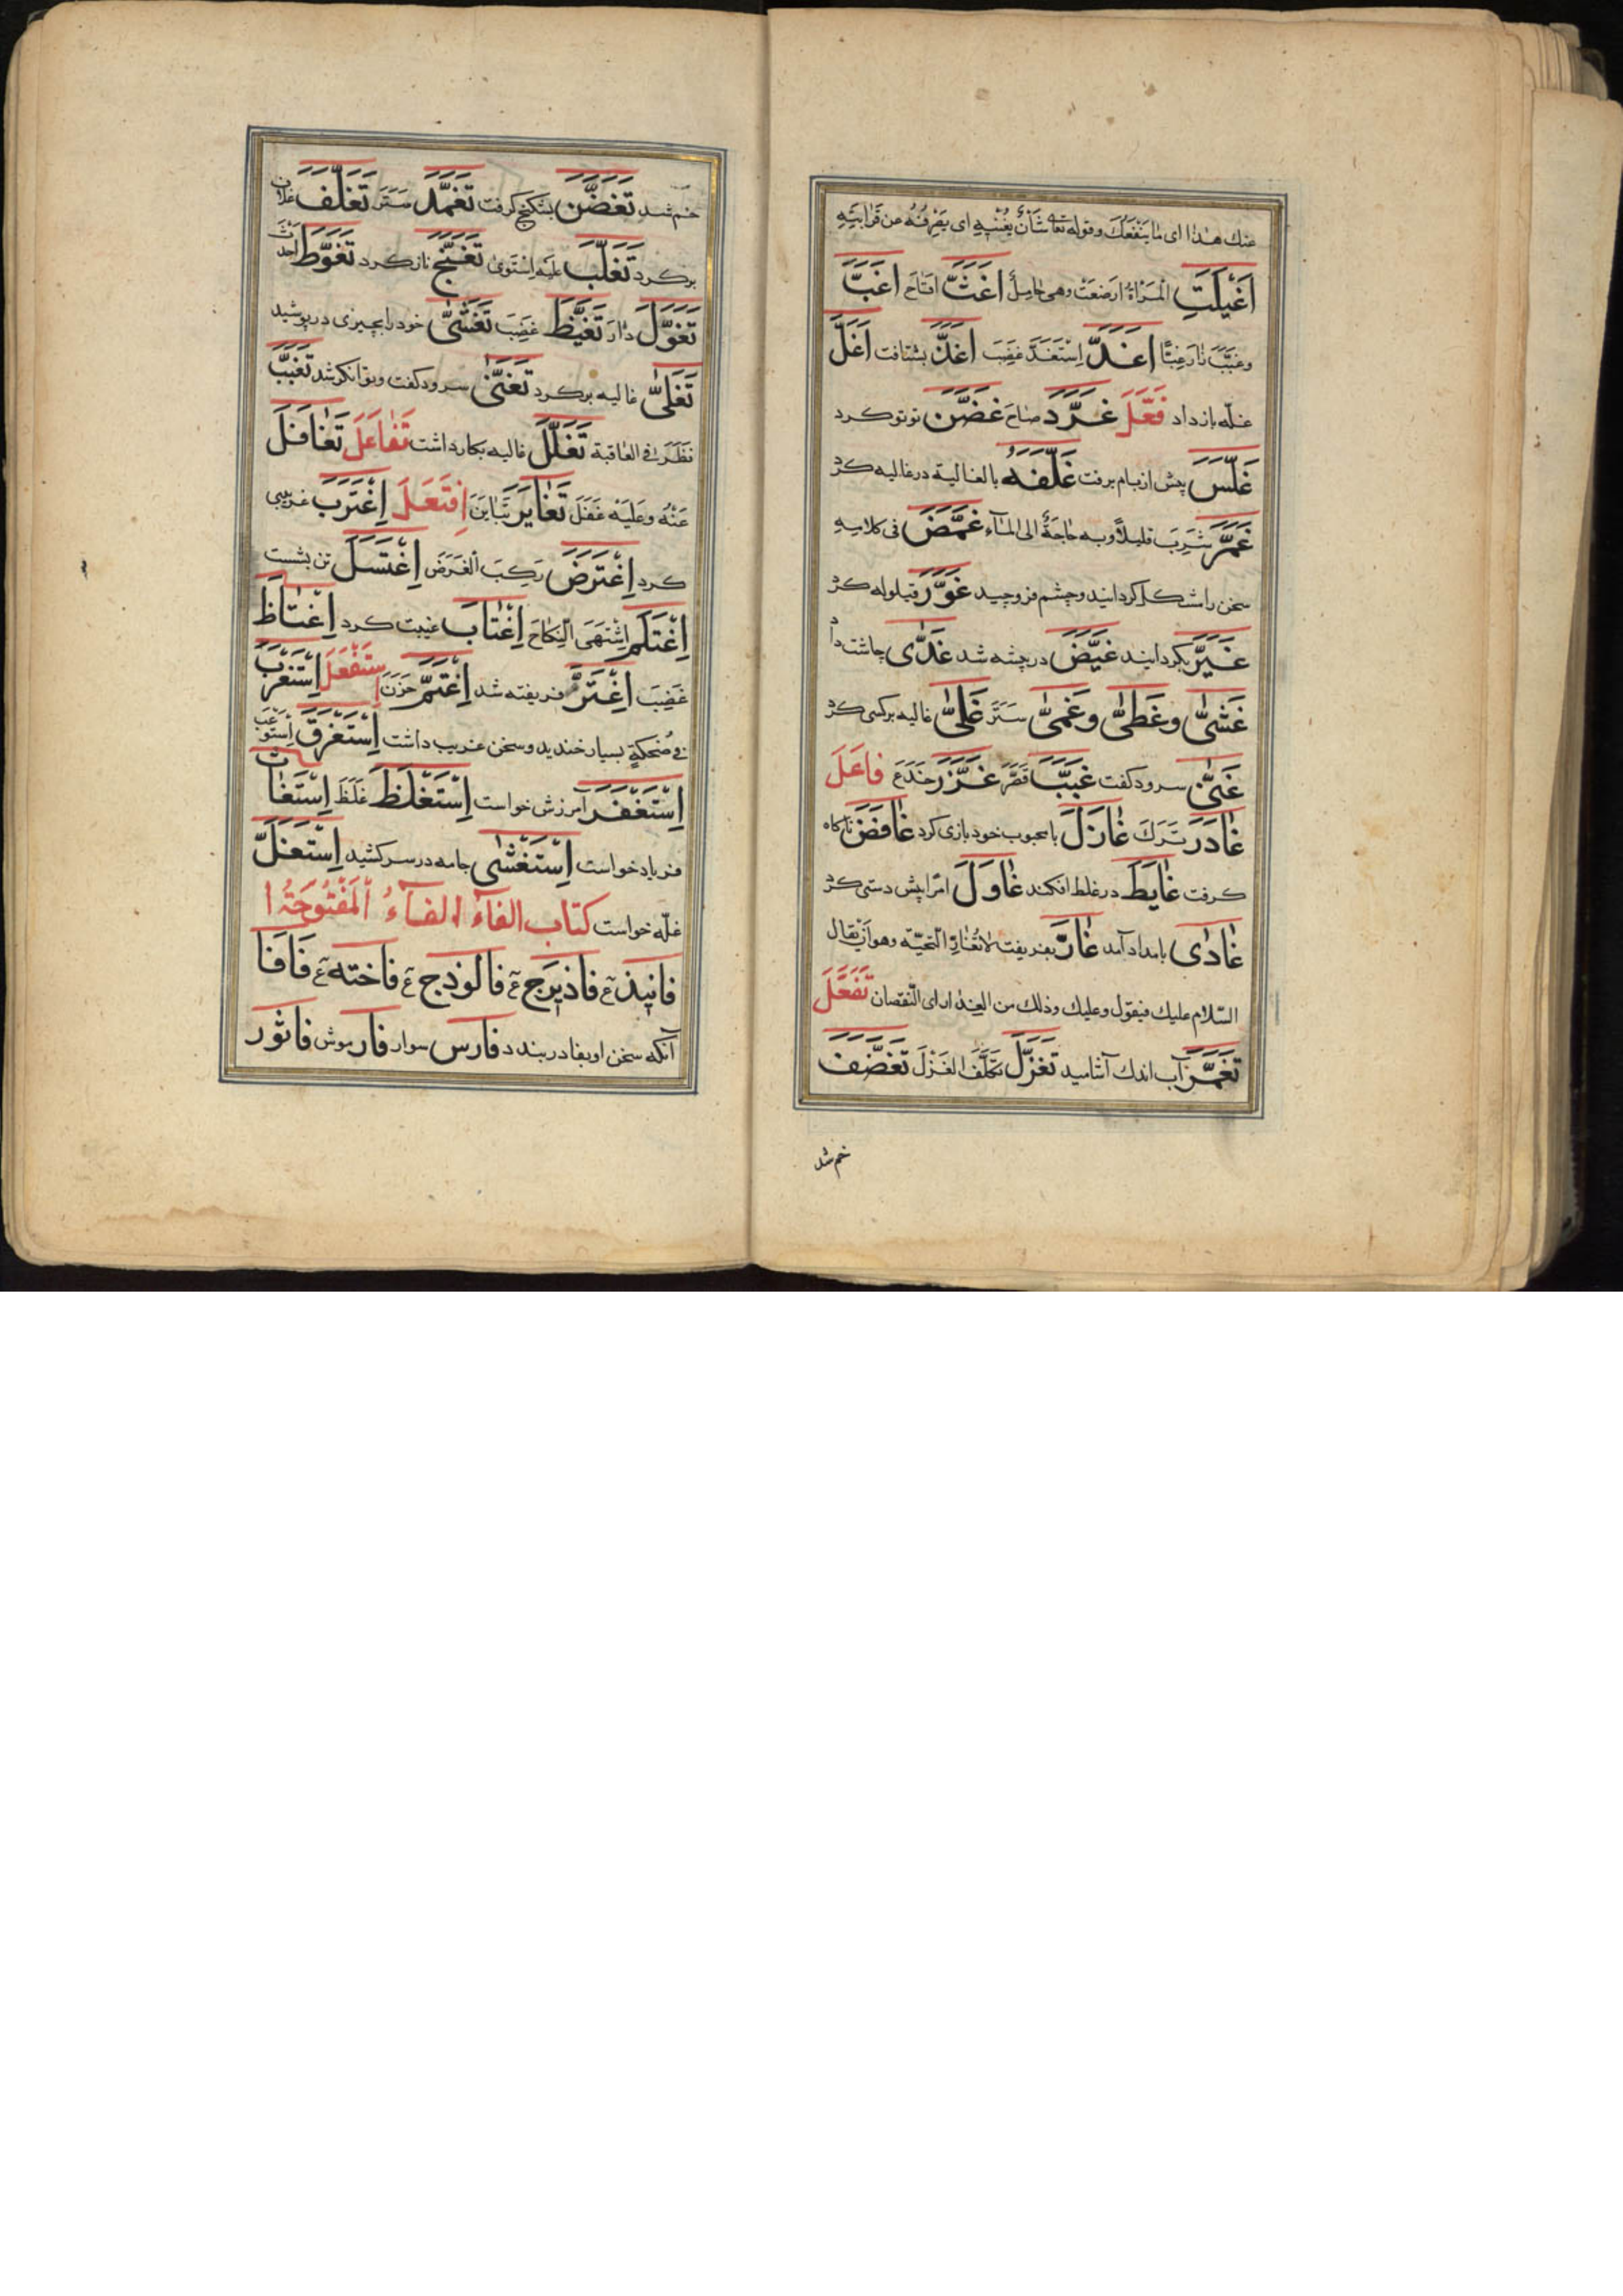 عنك هذا اى ما ينفعك وقوله تعا شأن يغنيه اى يصرفه عن قرابته
اغيلت المرأة ارضعت وهى حامل اغث اغبّ
وغبّب زار غبّا اغدّ استغدّ غضب اغذّ بشتافت اغلّ
غلّه باز داد فعّل غرّد صاح غضّن توتو كرد
غلّس پيش از بام برفت غلّفه بالغالية در غاليه كرد
غمّر شرب قليلا وبه حاجة الى الماء غمّض فى كلامه
سخن را مشكل كردانيد وچشم فروچيد غوّر قيلوله كرد
غيّر بكردانيد غيّض در چشه شد غدّى چاشت داد
غشّى وغطّى وغمّى ستر غلّى غاليه بر كسى كرد
غنّى سرود كفت غبّب قصّر غرّر خدع فاعل
غادر ترك غازل با محبوب خود بازى كرد غافص ناكاه
كرفت غايط در غلط افكند غاول پيش دستى كرد
غادى بامداد آمد غارّ بفريفت لا تغارّ التحيّة وهو ان يقال
السّلام عليك فيقول وعليك وذلك من الغرار اى النّقصان تفعّل
تغمّر آب اندك آشاميد تغزّل تكلّف الغزل تغضّف
خم شد
خم شد تغضّن بشكنج كرفت تغمّد ستر تغلّف غلاف
بر كرد تغلّب عليه استوى تغنّج ناز كرد تغوّط احدث
تغوّل دار تغيّظ غضب تغشّى خود را بچيزى در پوشيد
تغلّى غاليه بر كرد تغنّى سرود كفت وتوانكر شد تغبّب
نظر فى العاقبة تغلّل غاليه بكار داشت تفاعل تغافل
عنه وعليه غفل تغاير تباين افتعل اغترب غريبى
كرد اغترض ركب الغرض اغتسل تن بشست
اغتلم اشتهى النكاح اغتاب غيبت كرد اغتاظ
غضب اغترّ فريفته شد اغتمّ حزن استفعل استغرب
فى ضحكه بسيار خنديد وسخن غريب داشت استغرق استوعب
استغفر آمرزش خواست استغلظ غلظ استغاث
فرياد خواست استغشى جامه در سر كشيد استغلّ
غلّه خواست كتاب الفاء الفاء المفتوحة ا
فانيذ ع فاذيرج ع فالوذج ع فاخته ع فافا
آنكه سخن او بفا در بندد فارس سوار فار موش فاثور